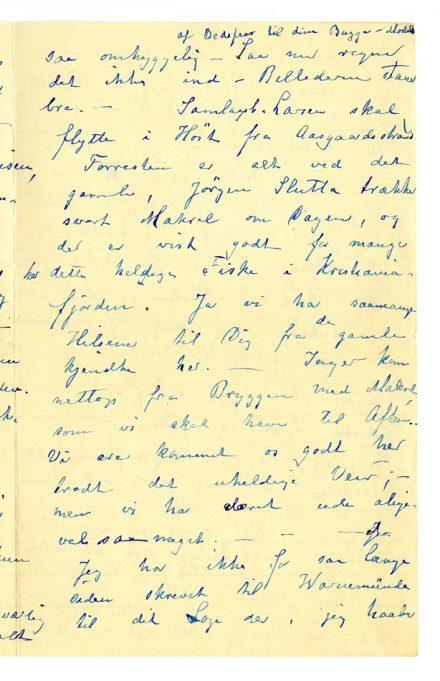 af Bedefaar til dine Bugge - Models
saa omhyggelig - Saa nu regner
det ikke ind - Billederne staar
bra. - Samlagsb. Larsen skal
flytte i Höst fra Aasgaardsstrand
Forresten er alt ved det
gamle, Jörgen Slutta trækker
svart Makrel om Dagen, og
der er vist godt for mange
dette heldige Fiske i Kristiania-
fjorden. Ja vi har saamange
Hilsener til Dig fra de gamle
kjendte her. - Inger kom
nettop fra Bryggen med Makrel
som vi skal have til Aften.
Vi ere kommet os godt her
trods det uheldige Veir; -
men vi har været ude alige-
vel saa meget. - - -
Jeg har ikke for saa lange
siden skrevet til Warnemünde
til dit Logi der, jeg haaber